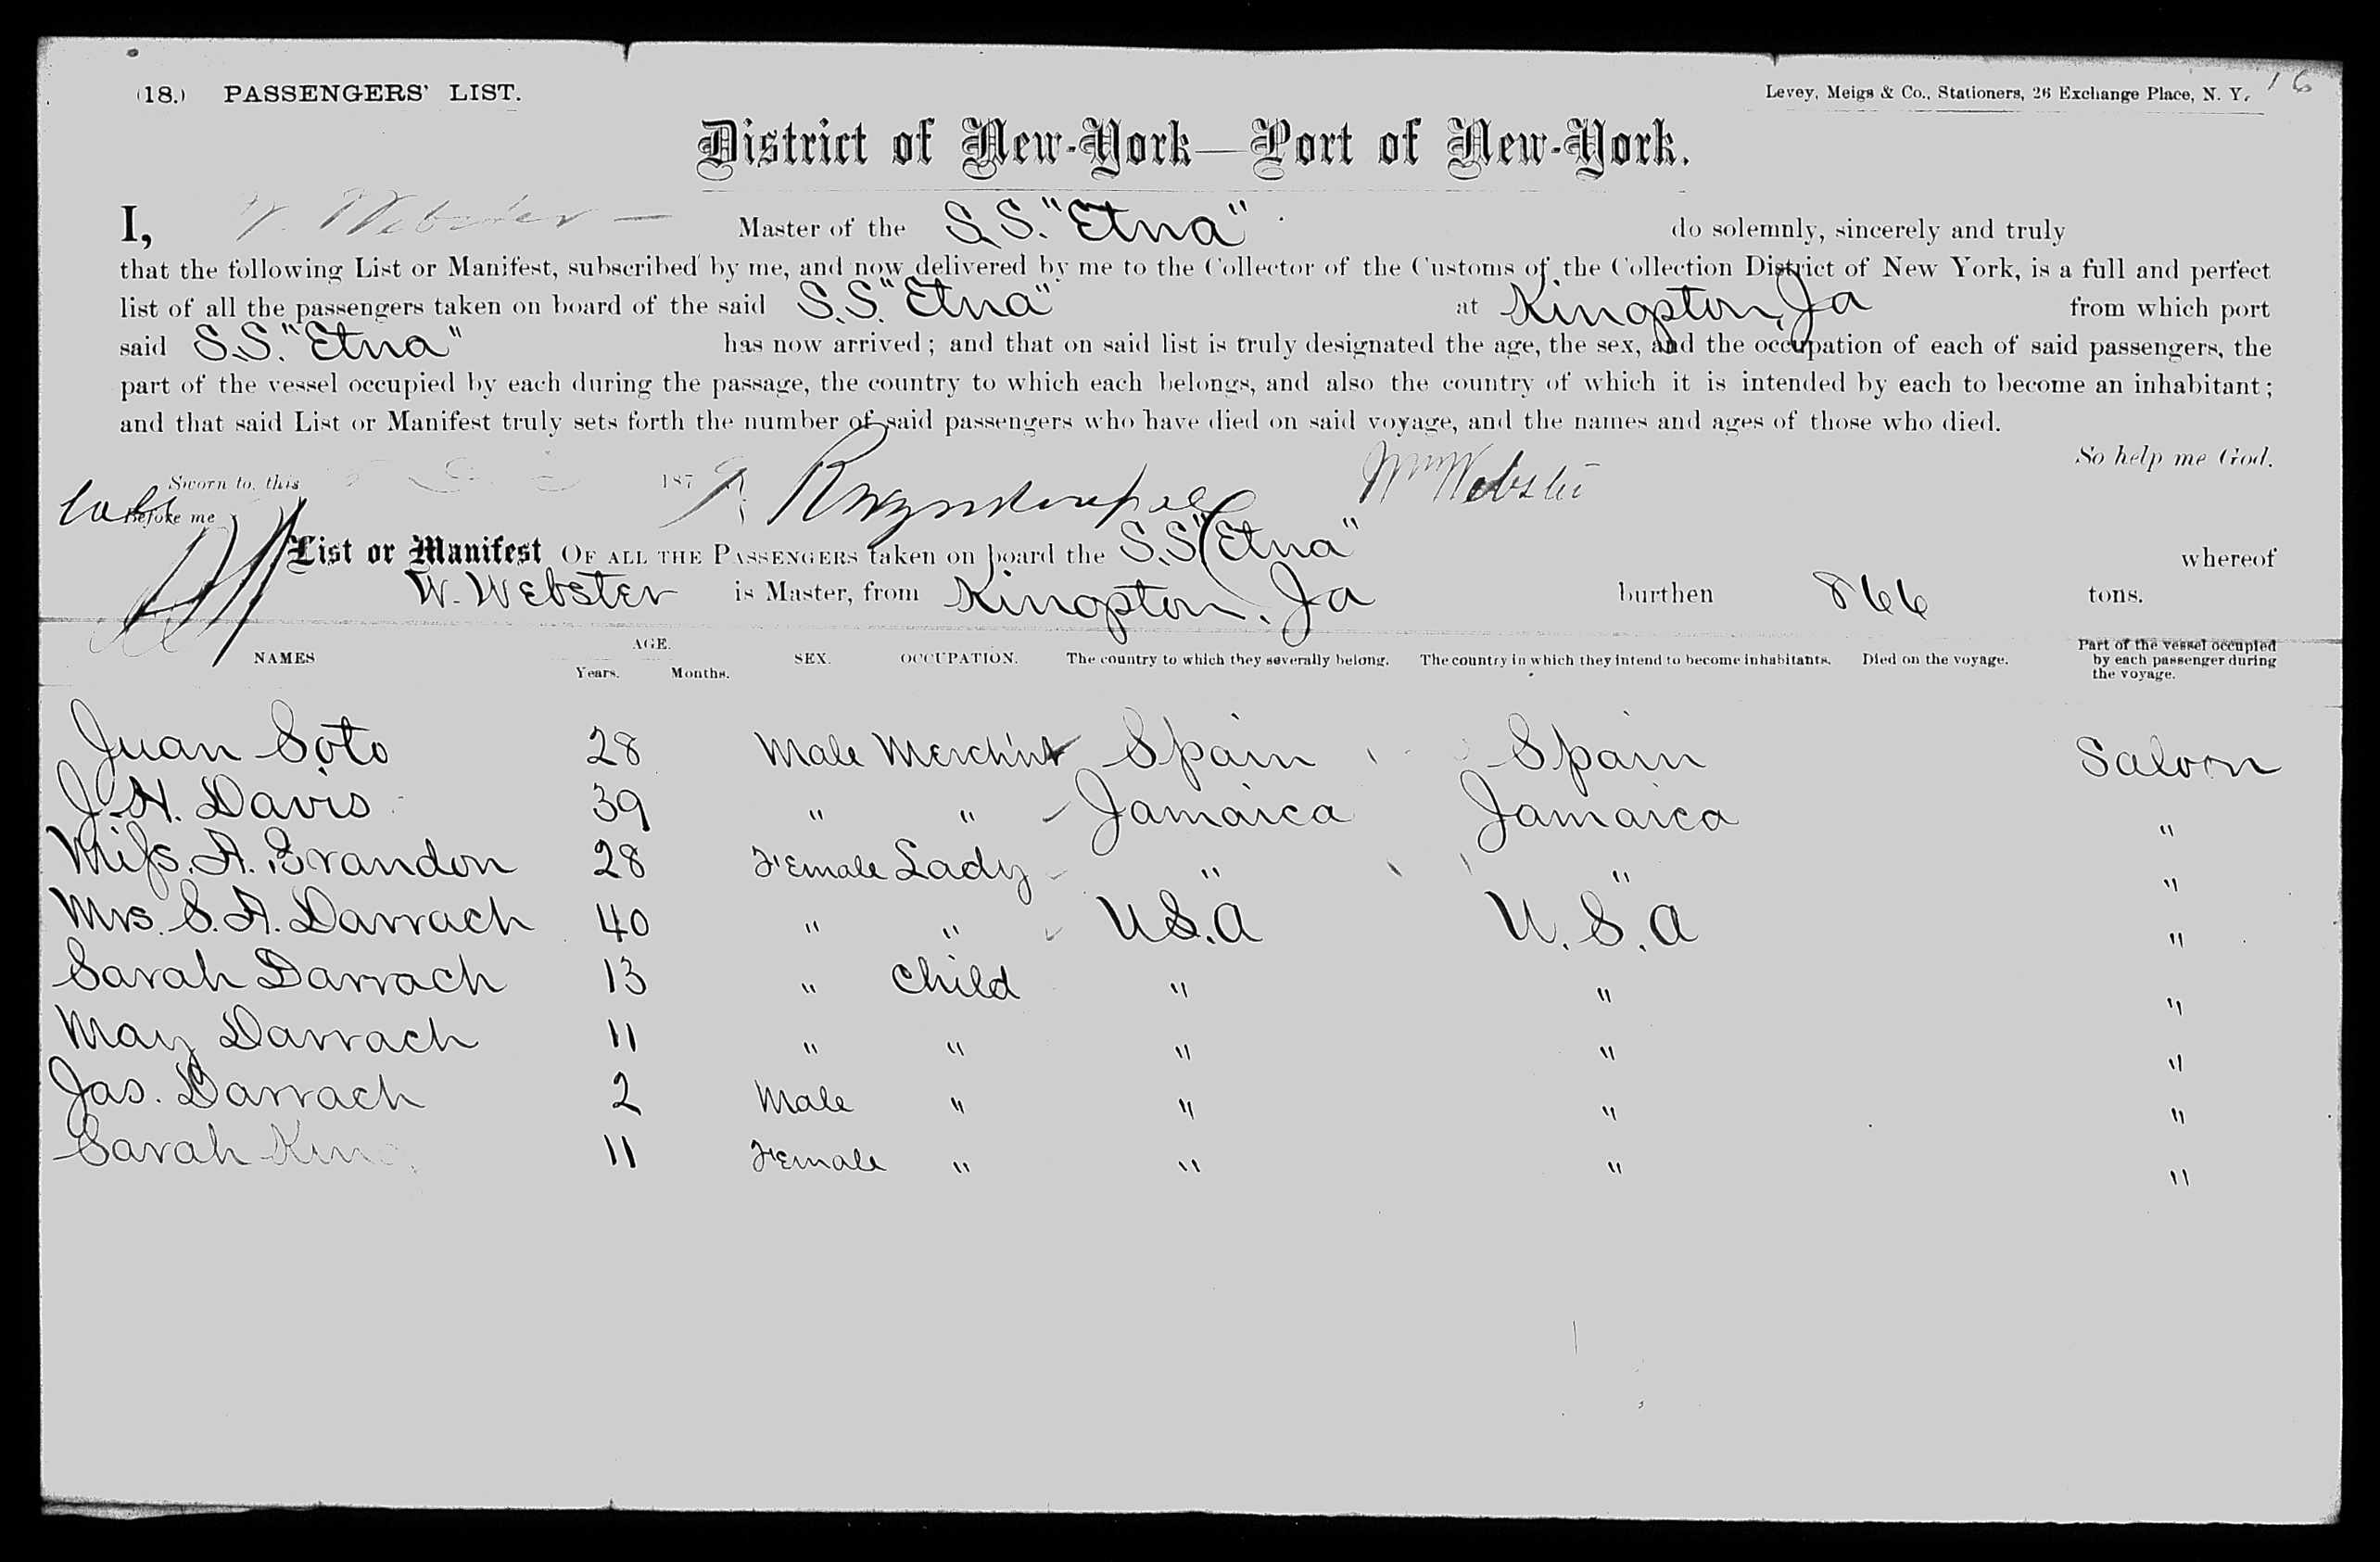 (18.) PASSENGERS' LIST.
Levey, Meigs & Co., Stationers, 26 Exchange Place, N. Y. 16
District of New-York—Port of New-York.
I, W. Webster — Master of the S.S. "Etna" do solemnly, sincerely and truly
that the following List or Manifest, subscribed by me, and now delivered by me to the Collector of the Customs of the Collection District of New York, is a full and perfect
list of all the passengers taken on board of the said S.S. "Etna" at Kingston, Ja from which port
said S.S. "Etna" has now arrived; and that on said list is truly designated the age, the sex, and the occupation of each of said passengers, the
part of the vessel occupied by each during the passage, the country to which each belongs, and also the country of which it is intended by each to become an inhabitant;
and that said List or Manifest truly sets forth the number of said passengers who have died on said voyage, and the names and ages of those who died.
So help me God.
Sworn to, this 187 Wm Webster
Before me
List or Manifest OF ALL THE PASSENGERS taken on board the S.S "Etna" whereof
W. Webster is Master, from Kingston, Ja burthen 866 tons.
NAMES AGE. Years. Months. SEX. OCCUPATION. The country to which they severally belong. The country in which they intend to become inhabitants. Died on the voyage. Part of the vessel occupied by each passenger during the voyage.
Juan Soto 28 Male Merch'nt Spain Spain Saloon
J. H. Davis 39 " " Jamaica Jamaica "
Miss. A. Brandon 28 Female Lady " " "
Mrs. S. A. Darrach 40 " " U.S.A U.S.A "
Sarah Darrach 13 " Child " " "
May Darrach 11 " " " " "
Jas. Darrach 2 Male " " " "
Sarah King 11 Female " " " "